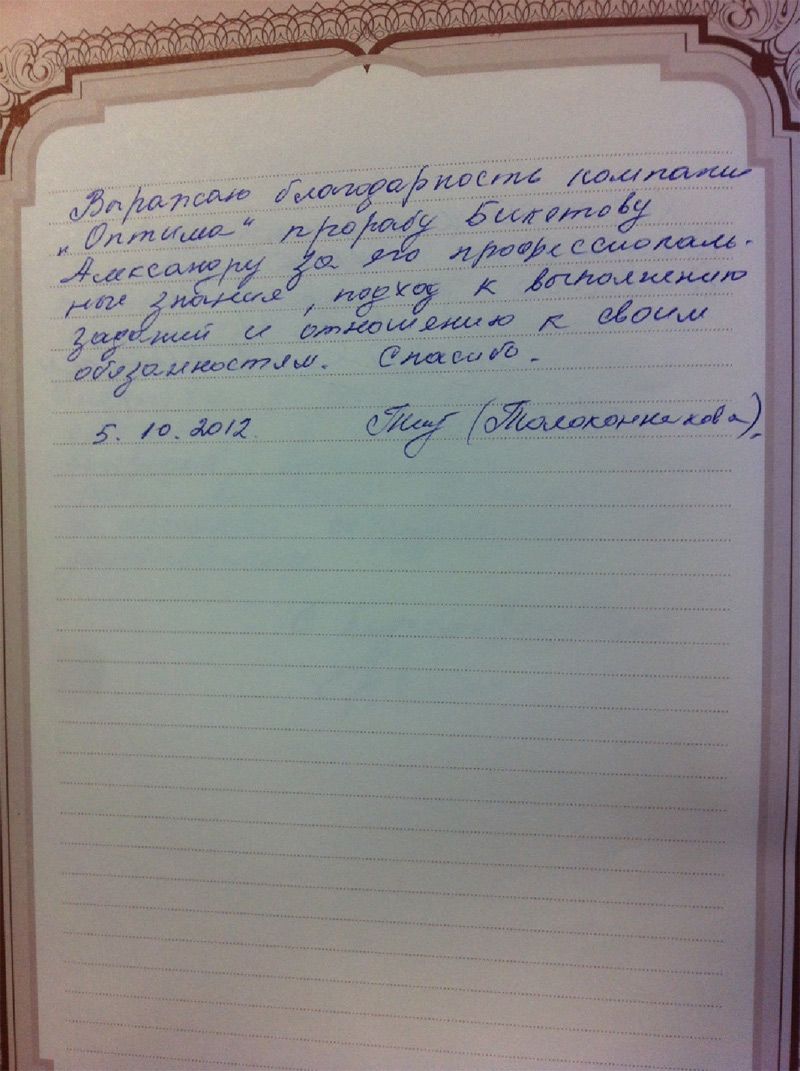 Выражаю благодарность компании
„Оптима“ прорабу Бикетову
Александру за его профессиональ-
ные знания, подход к выполнению
заданий и отношению к своим
обязанностям. Спасибо.
5. 10. 2012. (Толоконникова).